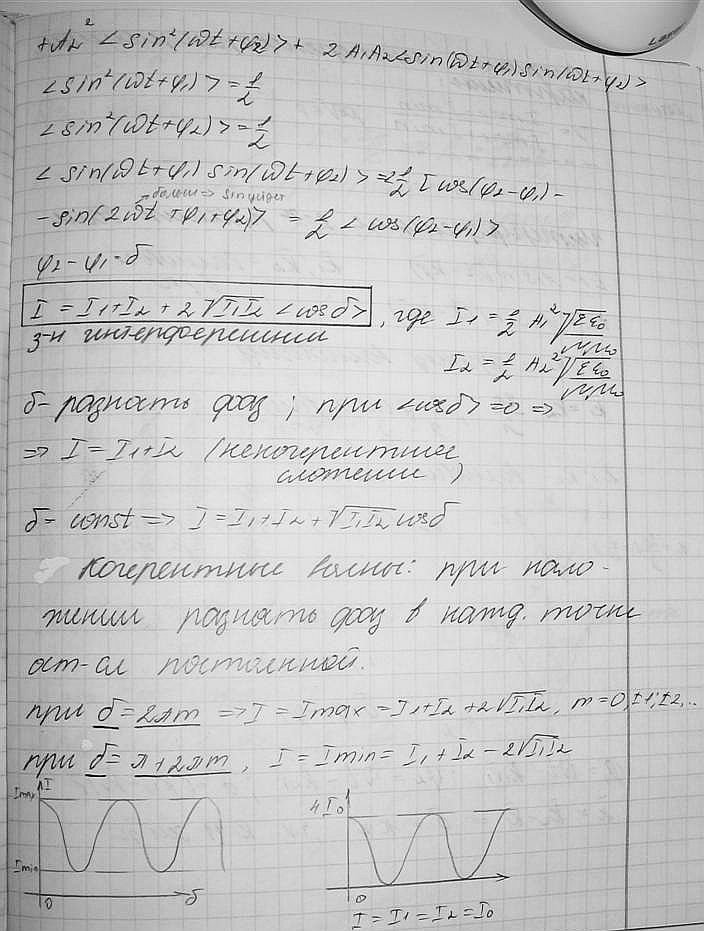 +A₂² <sin²(ωt+φ₂)> + 2A₁A₂<sin(ωt+φ₁)sin(ωt+φ₂)>
<sin²(ωt+φ₁)> = 1/2
<sin²(ωt+φ₂)> = 1/2
<sin(ωt+φ₁) sin(ωt+φ₂)> = 1/2 [cos(φ₂-φ₁) -
- sin(2ωt + φ₁+φ₂)> = 1/2 <cos(φ₂-φ₁)>
φ₂-φ₁=δ
I = I₁+I₂ + 2√I₁I₂ <cosδ>, где I₁ = 1/2 A₁² √εε₀/μμ₀
з-н интерференции
I₂ = 1/2 A₂² √εε₀/μμ₀
δ- разность фаз ; при <cosδ> =0 =>
=> I = I₁+I₂ (некогерентное
сложение)
δ= const => I = I₁+I₂+√I₁I₂ cosδ
Когерентные волны: при нало-
жении разность фаз в кажд. точке
ост-ся постоянной.
при δ=2πm => I = Imax = I₁+I₂+2√I₁I₂, m=0,±1,±2,..
при δ= π+2πm, I = Imin= I₁+I₂-2√I₁I₂
Imax I
4I₀
Imin
0 δ
0
I = I₁ = I₂ = I₀